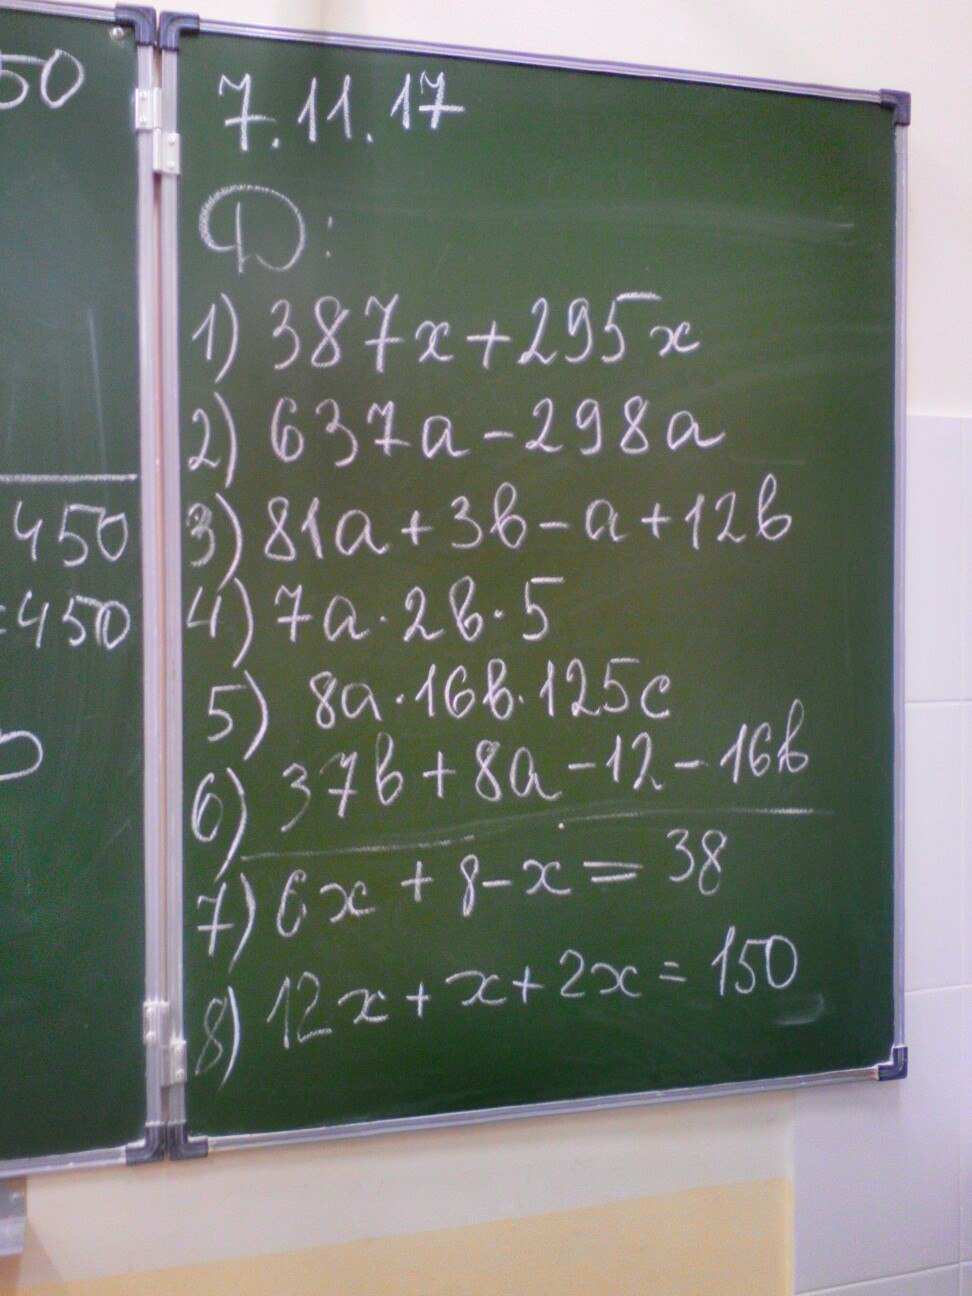 50
450
=450
7.11.17
D:
1) 387x+295x
2) 637a-298a
3) 81a+3b-a+12b
4) 7a·2b·5
5) 8a·16b·125c
6) 37b+8a-12-16b
7) 6x+8-x=38
8) 12x+x+2x=150